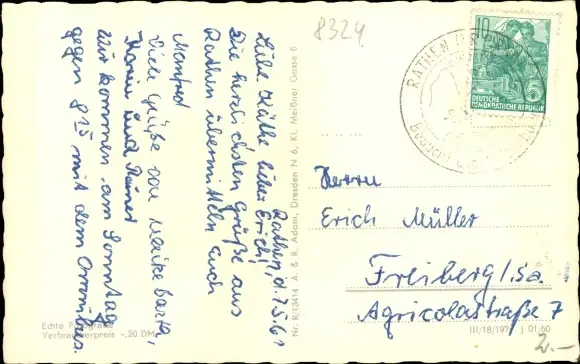 8324
Rathen, d. 7.5.6?
Liebe Käthe, lieber Erich!
Die herzlichsten Grüße aus
Rathen übermitteln euch
Manfred
Viele Grüße von
Karin und
Wir kommen am Sonntag
gegen 8 15 mit dem Omnibus.
Echte
Verbraucherpreis -.20 DM
Nr. R/13414 A. & R. Adam, Dresden N 6, Kl. Meißner Gasse 5
RATHEN
10
5
DEUTSCHE
DEMOKRATISCHE REPUBLIK
Herrn
Erich Müller
Freiberg/Sa.
Agricolastraße 7
III/18/197 J 01/60
2.-